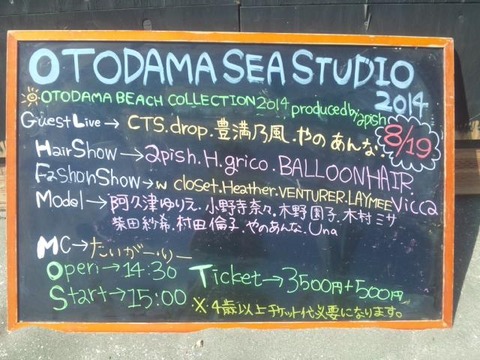 OTODAMA SEA STUDIO
2014
OTODAMA BEACH COLLECTION 2014 produced by apish
8/19
Guest Live→CTS.drop.豊満乃風.やのあんな.
HairShow→apish.H.grico.BALLOONHAIR.
FashonShow→w closet.Heather.VENTURER.LAYMEE Vicca
Model→阿久津ゆりえ.小野寺奈々.木野園子.木村ミサ
柴田紗希.村田倫子.やのあんな.Una
MC→たいがーりー
Open→14:30
Ticket→3500円+500円
Start→15:00
※4歳以上チケット代必要になります。